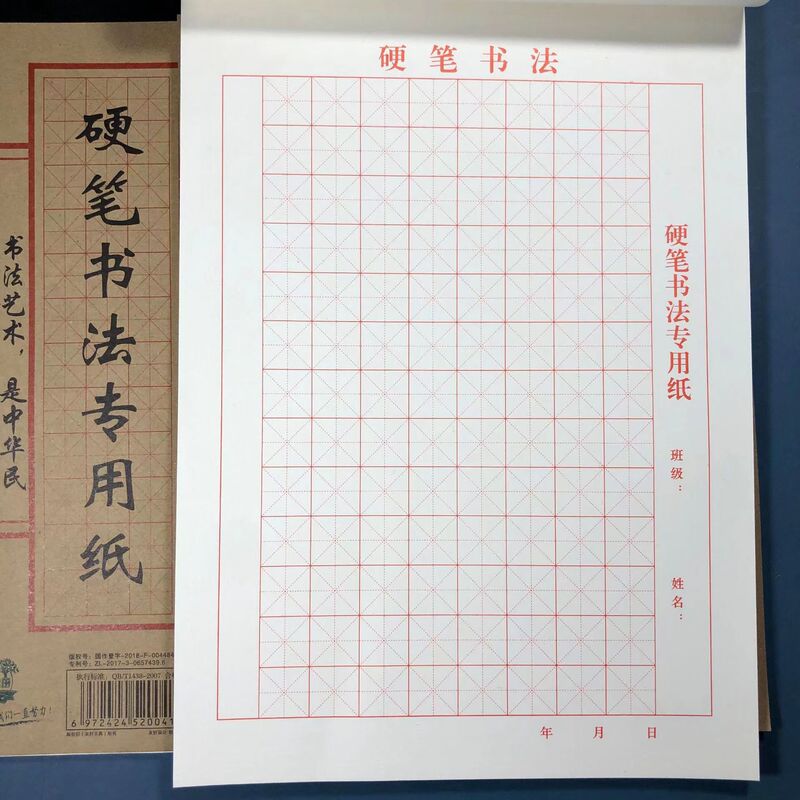 硬笔书法
硬笔书法专用纸
班级：
姓名：
年 月 日
硬笔书法专用纸
书法艺术，是中华民
版权号：国作登字-2018-F-004484
专利号：ZL-2017-3-0657439.6
执行标准：QB/T1438-2007
6 972424 52004
们一直努力！